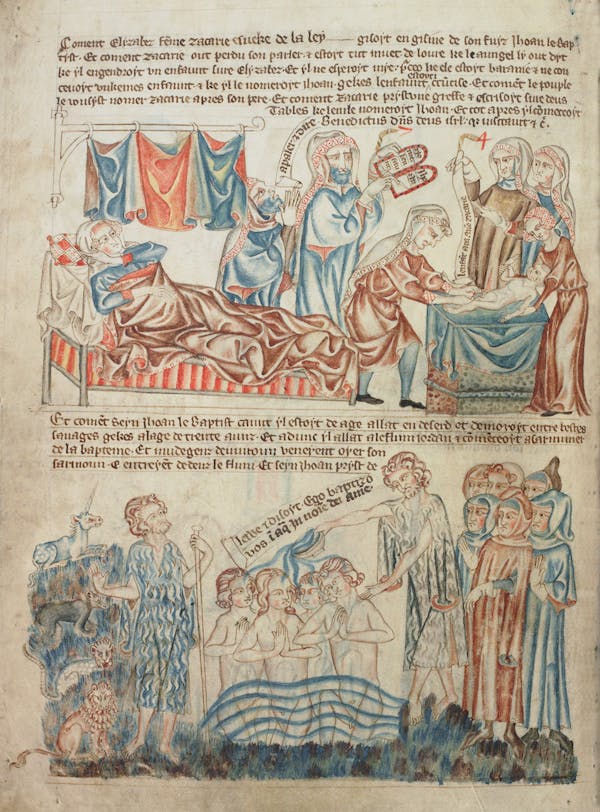 Coment Elizabet feme zacarie eveke de la ley — gisoyt en gisine de son fuiz Jhoan le Bap
tyst. Et coment zacarie out perdu son parler. & estoyt tut muet de loure ke le aungel ly out dyt
ke yl engendroyt un enfaunt sure Elyzabet. Et yl ne esperoyt mye. pur ceo ke ele estoyt baraine & ne con
estoyet
cevoyt unkemes enfaunt. & ke yl le nomeroyt Jhoan. gekes lenfaunt circucise. Et coment le pouple
le volsyst nomer zacarie apres son pere. Et coment zacarie pryst une greffe & escrisoyt sure deus
Tables ke leule nomeroyt Jhoan. Et tot apres yl comencoyt
a parler & dire Benedictus dns deus isrl. q visitauit & c.
Et comet seyn Jhoan le Baptist cauut yl estoyt de age allat en deserd et demoroyt entre bestes
sauages gekes al age de trente aunz. Et adunc yl allat al eflum iordan & comenceoyt a sarmuner
de la bapteme. Et mult de geuz de cuntour venerent oyer son
sarmoun. & entreyent dedenz le flum. Et seyn Jhoan pryst de
lewe & disoyt Ego baptizo
vos i aq in noie dei